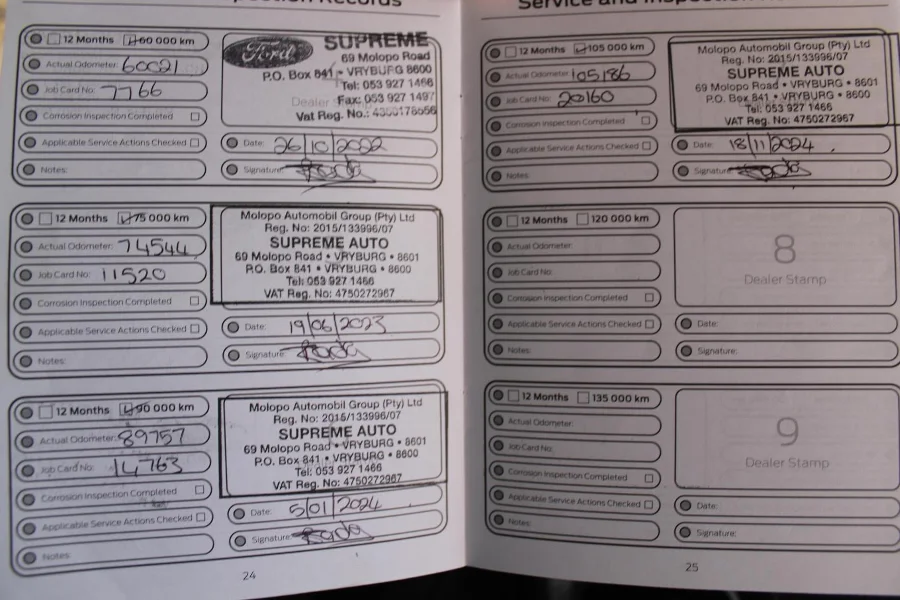 Service and Inspection
12 Months 60 000 km
Actual Odometer: 60021
Job Card No: 7766
Corrosion Inspection Completed
Applicable Service Actions Checked
Notes:
Ford
SUPREME
69 Molopo Road
P.O. Box 841 • VRYBURG 8600
Tel: 053 927 1466
Dealer
Fax: 053 927 1497
Vat Reg. No.:
Date: 26/10/2022
Signature:
12 Months 75 000 km
Actual Odometer: 74544
Job Card No: 11520
Corrosion Inspection Completed
Applicable Service Actions Checked
Notes:
Molopo Automobil Group (Pty) Ltd
Reg. No: 2015/133996/07
SUPREME AUTO
69 Molopo Road • VRYBURG • 8601
P.O. Box 841 • VRYBURG • 8600
Tel: 053 927 1466
VAT Reg. No: 4750272967
Date: 19/06/2023
Signature:
12 Months 90 000 km
Actual Odometer: 89757
Job Card No: 14763
Corrosion Inspection Completed
Applicable Service Actions Checked
Notes:
Molopo Automobil Group (Pty) Ltd
Reg. No: 2015/133996/07
SUPREME AUTO
69 Molopo Road • VRYBURG • 8601
P.O. Box 841 • VRYBURG • 8600
Tel: 053 927 1466
VAT Reg. No: 4750272967
Date: 5/01/2024
Signature:
24
12 Months 105 000 km
Actual Odometer: 105186
Job Card No: 20160
Corrosion Inspection Completed
Applicable Service Actions Checked
Notes:
Molopo Automobil Group (Pty) Ltd
Reg. No: 2015/133996/07
SUPREME AUTO
69 Molopo Road • VRYBURG • 8601
P.O. Box 841 • VRYBURG • 8600
Tel: 053 927 1466
VAT Reg. No: 4750272967
Date: 18/11/2024
Signature:
12 Months 120 000 km
Actual Odometer:
Job Card No:
Corrosion Inspection Completed
Applicable Service Actions Checked
Notes:
8
Dealer Stamp
Date:
Signature:
12 Months 135 000 km
Actual Odometer:
Job Card No:
Corrosion Inspection Completed
Applicable Service Actions Checked
Notes:
9
Dealer Stamp
Date:
Signature:
25